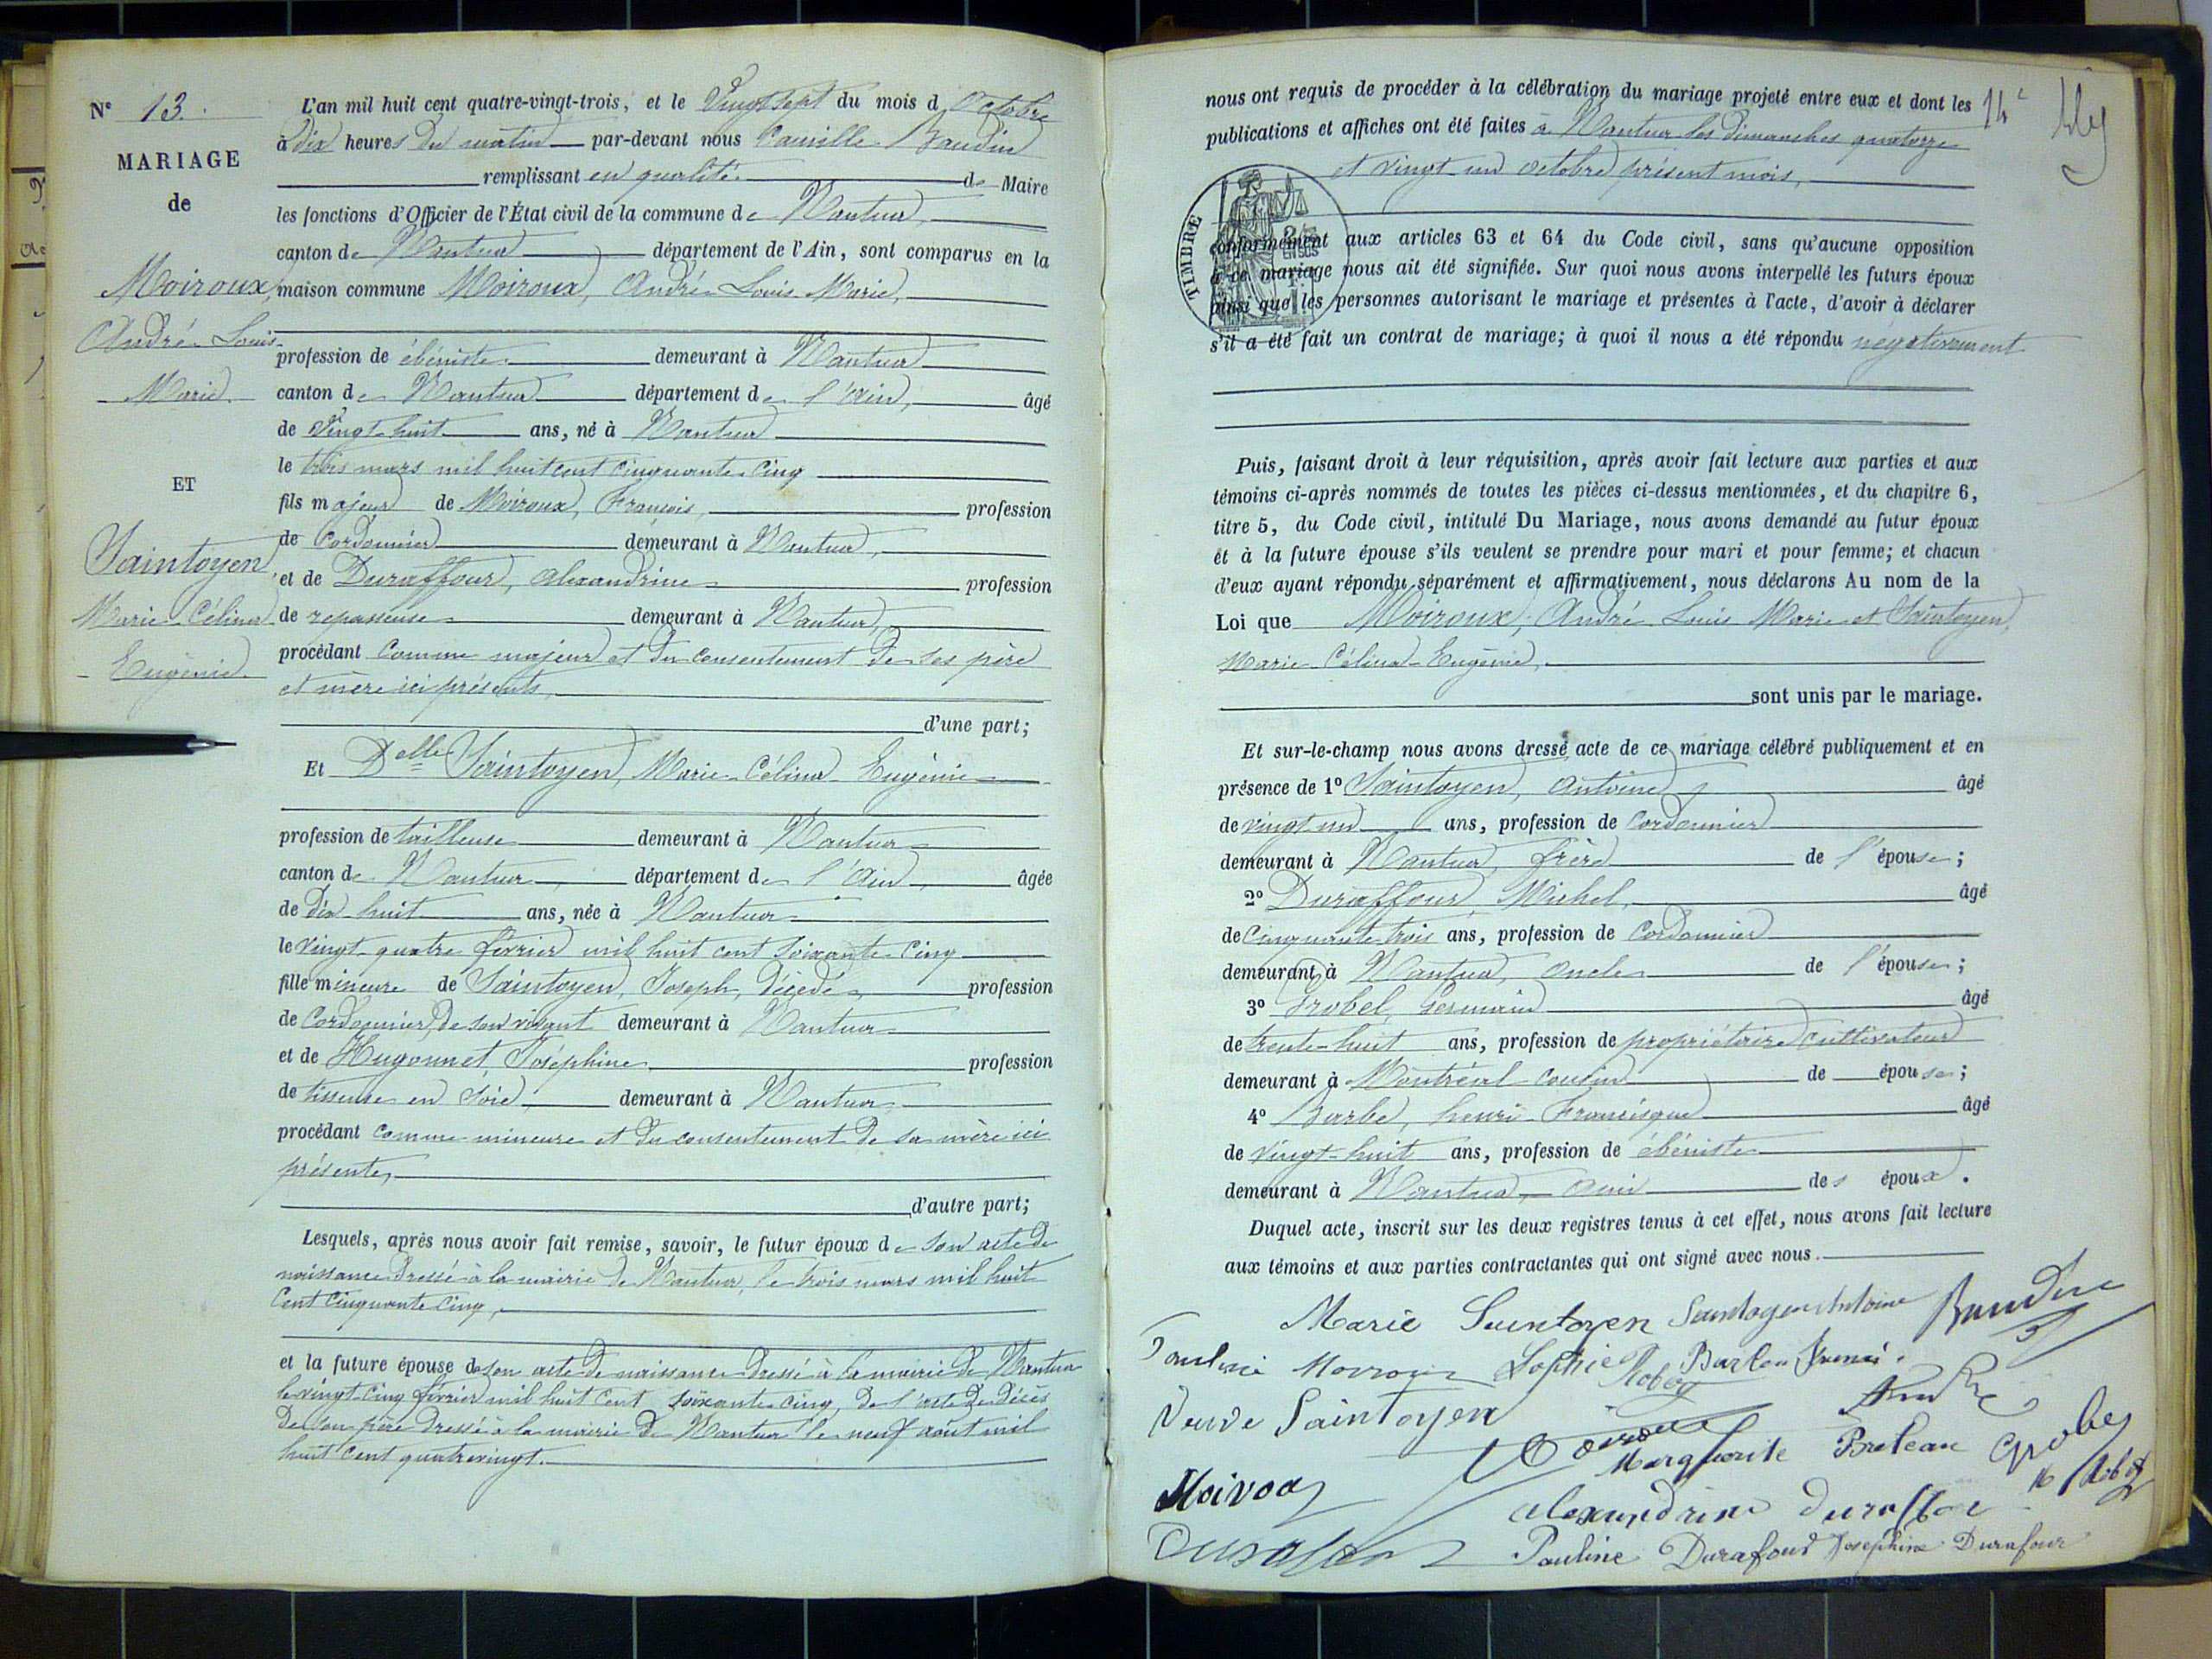 N° 13.
MARIAGE
de
Moiroux,
André Louis
Marie.
ET
Saintoyen
Marie Célina
Eugénie.
L'an mil huit cent quatre-vingt-trois, et le Vingt sept du mois d'Octobre
à dix heures du matin par-devant nous Camille Baudin
remplissant en qualité de Maire
les fonctions d'Officier de l'État civil de la commune de Nantua,
canton de Nantua département de l'Ain, sont comparus en la
maison commune Moiroux, André Louis Marie,
profession de ébéniste demeurant à Nantua
canton de Nantua département de l'Ain, âgé
de Vingt-huit ans, né à Nantua
le trois mars mil huit cent cinquante-cinq
fils majeur de Moiroux, François, profession
de Cordonnier demeurant à Nantua,
et de Duraffour, Alexandrine profession
de repasseuse demeurant à Nantua,
procédant comme majeur et du consentement de ses père
et mère ici présents,
d'une part;
Et Delle Saintoyen, Marie Célina Eugénie
profession de tailleuse demeurant à Nantua
canton de Nantua département de l'Ain, âgée
de dix-huit ans, née à Nantua
le vingt-quatre février mil huit cent soixante-cinq
fille mineure de Saintoyen, Joseph, décédé, profession
de Cordonnier, de son vivant demeurant à Nantua
et de Hugonnet, Joséphine profession
de tisseuse en soie, demeurant à Nantua,
procédant comme mineure et du consentement de sa mère ici
présente,
d'autre part;
Lesquels, après nous avoir fait remise, savoir, le futur époux de son acte de
naissance dressé à la mairie de Nantua, le trois mars mil huit
cent cinquante cinq,
et la future épouse de son acte de naissance dressé à la mairie de Nantua
le vingt-cinq février mil huit cent soixante-cinq, de l'acte de décès
de son père dressé à la mairie de Nantua le neuf août mil
huit cent quatrevingt.
14e
nous ont requis de procéder à la célébration du mariage projeté entre eux et dont les
publications et affiches ont été faites à Nantua les dimanches quatorze
et vingt-un octobre présent mois,
TIMBRE
conformément aux articles 63 et 64 du Code civil, sans qu'aucune opposition
à ce mariage nous ait été signifiée. Sur quoi nous avons interpellé les futurs époux
ainsi que les personnes autorisant le mariage et présentes à l'acte, d'avoir à déclarer
s'il a été fait un contrat de mariage; à quoi il nous a été répondu négativement
Puis, faisant droit à leur réquisition, après avoir fait lecture aux parties et aux
témoins ci-après nommés de toutes les pièces ci-dessus mentionnées, et du chapitre 6,
titre 5, du Code civil, intitulé Du Mariage, nous avons demandé au futur époux
et à la future épouse s'ils veulent se prendre pour mari et pour femme; et chacun
d'eux ayant répondu séparément et affirmativement, nous déclarons Au nom de la
Loi que Moiroux, André Louis Marie et Saintoyen,
Marie-Célina-Eugénie,
sont unis par le mariage.
Et sur-le-champ nous avons dressé acte de ce mariage célébré publiquement et en
présence de 1° Saintoyen, Antoine âgé
de vingt-un ans, profession de Cordonnier
demeurant à Nantua, frère de l'épouse;
2° Duraffour, Michel, âgé
de Cinquante-trois ans, profession de Cordonnier
demeurant à Nantua, oncle de l'épouse;
3° Grobel, Germain âgé
de trente-huit ans, profession de propriétaire cultivateur
demeurant à Montréal cousin de épouse;
4° Barbe, henri Francisque âgé
de vingt-huit ans, profession de ébéniste
demeurant à Nantua, ami des époux.
Duquel acte, inscrit sur les deux registres tenus à cet effet, nous avons fait lecture
aux témoins et aux parties contractantes qui ont signé avec nous.
Marie Saintoyen Saintoyen Antoine Baudin
Sophie
Veuve Saintoyen
Marguerite
alexandrine
Pauline Durafour Josephine Durafour